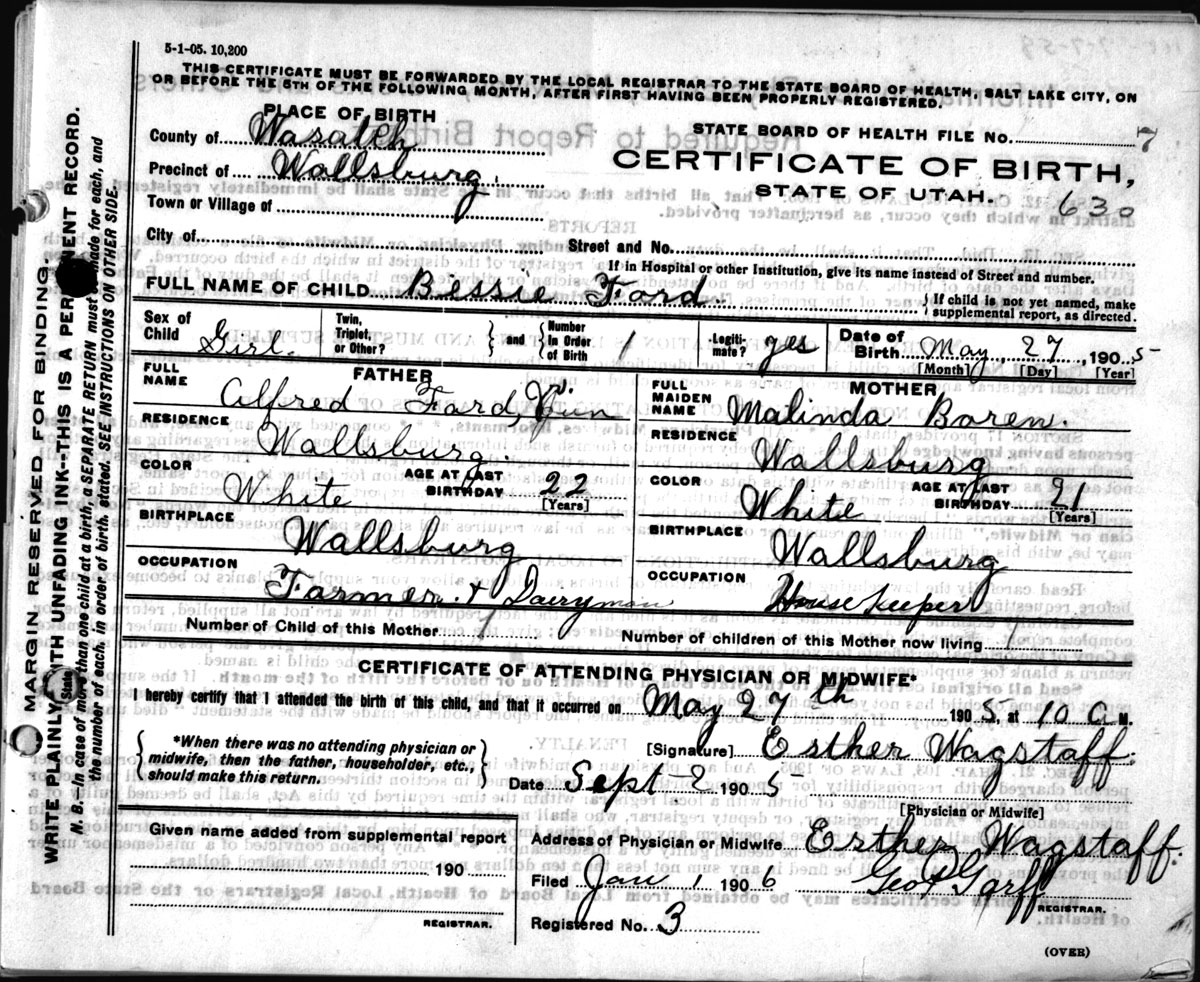 5-1-05. 10,200
THIS CERTIFICATE MUST BE FORWARDED BY THE LOCAL REGISTRAR TO THE STATE BOARD OF HEALTH, SALT LAKE CITY, ON
OR BEFORE THE 5TH OF THE FOLLOWING MONTH, AFTER FIRST HAVING BEEN PROPERLY REGISTERED.
PLACE OF BIRTH
County of Wasatch
Precinct of Wallsburg
Town or Village of
City of
STATE BOARD OF HEALTH FILE No. 7
CERTIFICATE OF BIRTH,
STATE OF UTAH. 630
Street and No.
If in Hospital or other Institution, give its name instead of Street and number.
FULL NAME OF CHILD Bessie Ford { If child is not yet named, make
supplemental report, as directed.
Sex of Child Girl. Twin, Triplet, or Other? } and { Number in Order of Birth 1 Legitimate? yes Date of Birth May, 27, 1905
[Month] [Day] [Year]
FATHER
FULL NAME Alfred Ford,
RESIDENCE Wallsburg.
COLOR White AGE AT LAST BIRTHDAY 22
[Years]
BIRTHPLACE Wallsburg
OCCUPATION Farmer + Dairyman
MOTHER
FULL MAIDEN NAME Malinda Boren.
RESIDENCE Wallsburg
COLOR White AGE AT LAST BIRTHDAY 21
[Years]
BIRTHPLACE Wallsburg
OCCUPATION House Keeper
Number of Child of this Mother 1 Number of children of this Mother now living 1
CERTIFICATE OF ATTENDING PHYSICIAN OR MIDWIFE*
I hereby certify that I attended the birth of this child, and that it occurred on May 27th 1905, at 10 A M.
{ *When there was no attending physician or
midwife, then the father, householder, etc.,
should make this return. }
[Signature] Esther Wagstaff.
Date Sept 2 1905
[Physician or Midwife]
Given name added from supplemental report
190
REGISTRAR.
Address of Physician or Midwife Esther Wagstaff.
Filed Jan 1 1906 Geo Garff
REGISTRAR.
Registered No. 3
(OVER)
MARGIN RESERVED FOR BINDING.
WRITE PLAINLY WITH UNFADING INK--THIS IS A PERMANENT RECORD.
N. B.--In case of more than one child at a birth, a SEPARATE RETURN must be made for each, and
the number of each, in order of birth, stated. SEE INSTRUCTIONS ON OTHER SIDE.
State